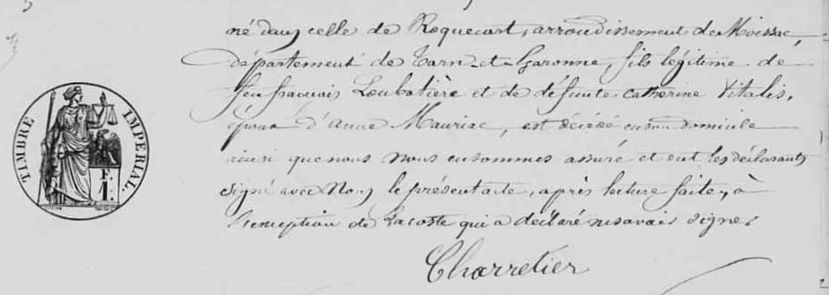 né dans celle de Roquecort, arrondissement de Moissac,
département de Tarn-et-Garonne, fils légitime de
feu françois Loubatière et de défunte Catherine Vitalis,
époux d'Anne Mauriac, est décédé en son domicile
ainsi que nous nous en sommes assuré et ont les déclarants
signé avec Nous le présent acte, après lecture faite, à
l'exception de Lacoste qui a déclaré ne savoir signer
Charretier
TIMBRE IMPÉRIAL.
F.
1.